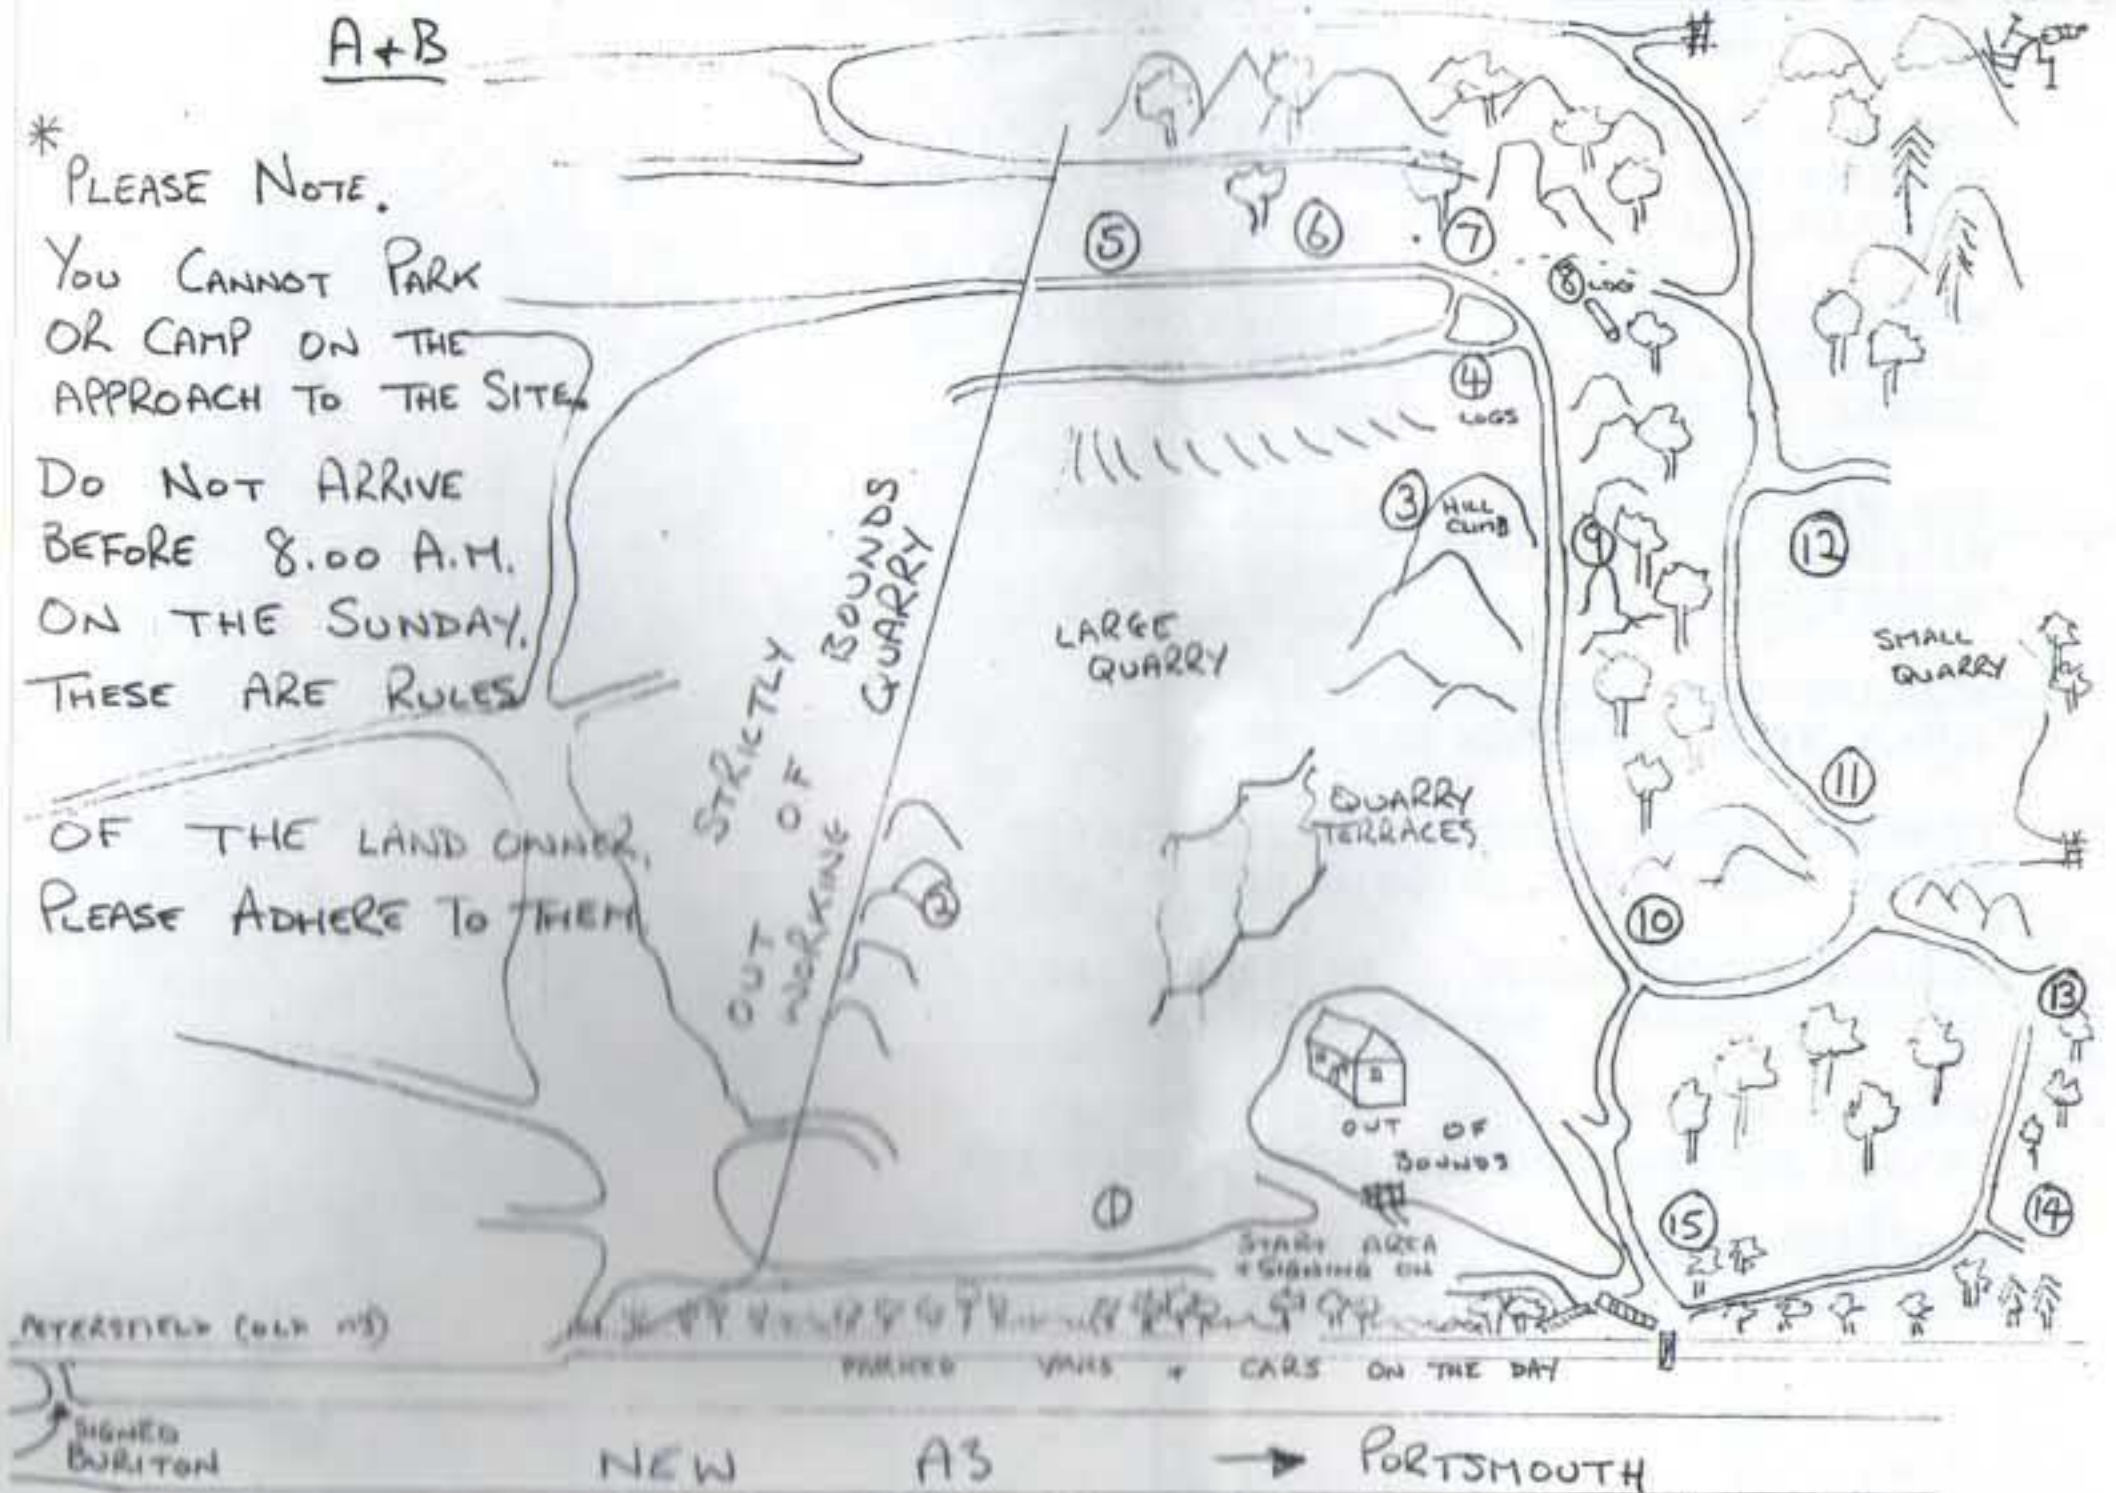 A+B
* PLEASE NOTE.
YOU CANNOT PARK
OR CAMP ON THE
APPROACH TO THE SITE.
DO NOT ARRIVE
BEFORE 8.00 A.M.
ON THE SUNDAY.
THESE ARE RULES
OF THE LAND OWNER.
PLEASE ADHERE TO THEM
5
6
7
8 LOG
4
LOGS
3 HILL
CLIMB
9
12
LARGE
QUARRY
SMALL
QUARRY
STRICTLY
OUT OF BOUNDS
WORKING QUARRY
QUARRY
TERRACES
11
2
10
13
OUT OF
BOUNDS
1
15
14
START AREA
+ SIGNING ON
PETERSFIELD (OLD A3)
PARKED VANS + CARS ON THE DAY
SIGNED
BURITON
NEW A3 → PORTSMOUTH